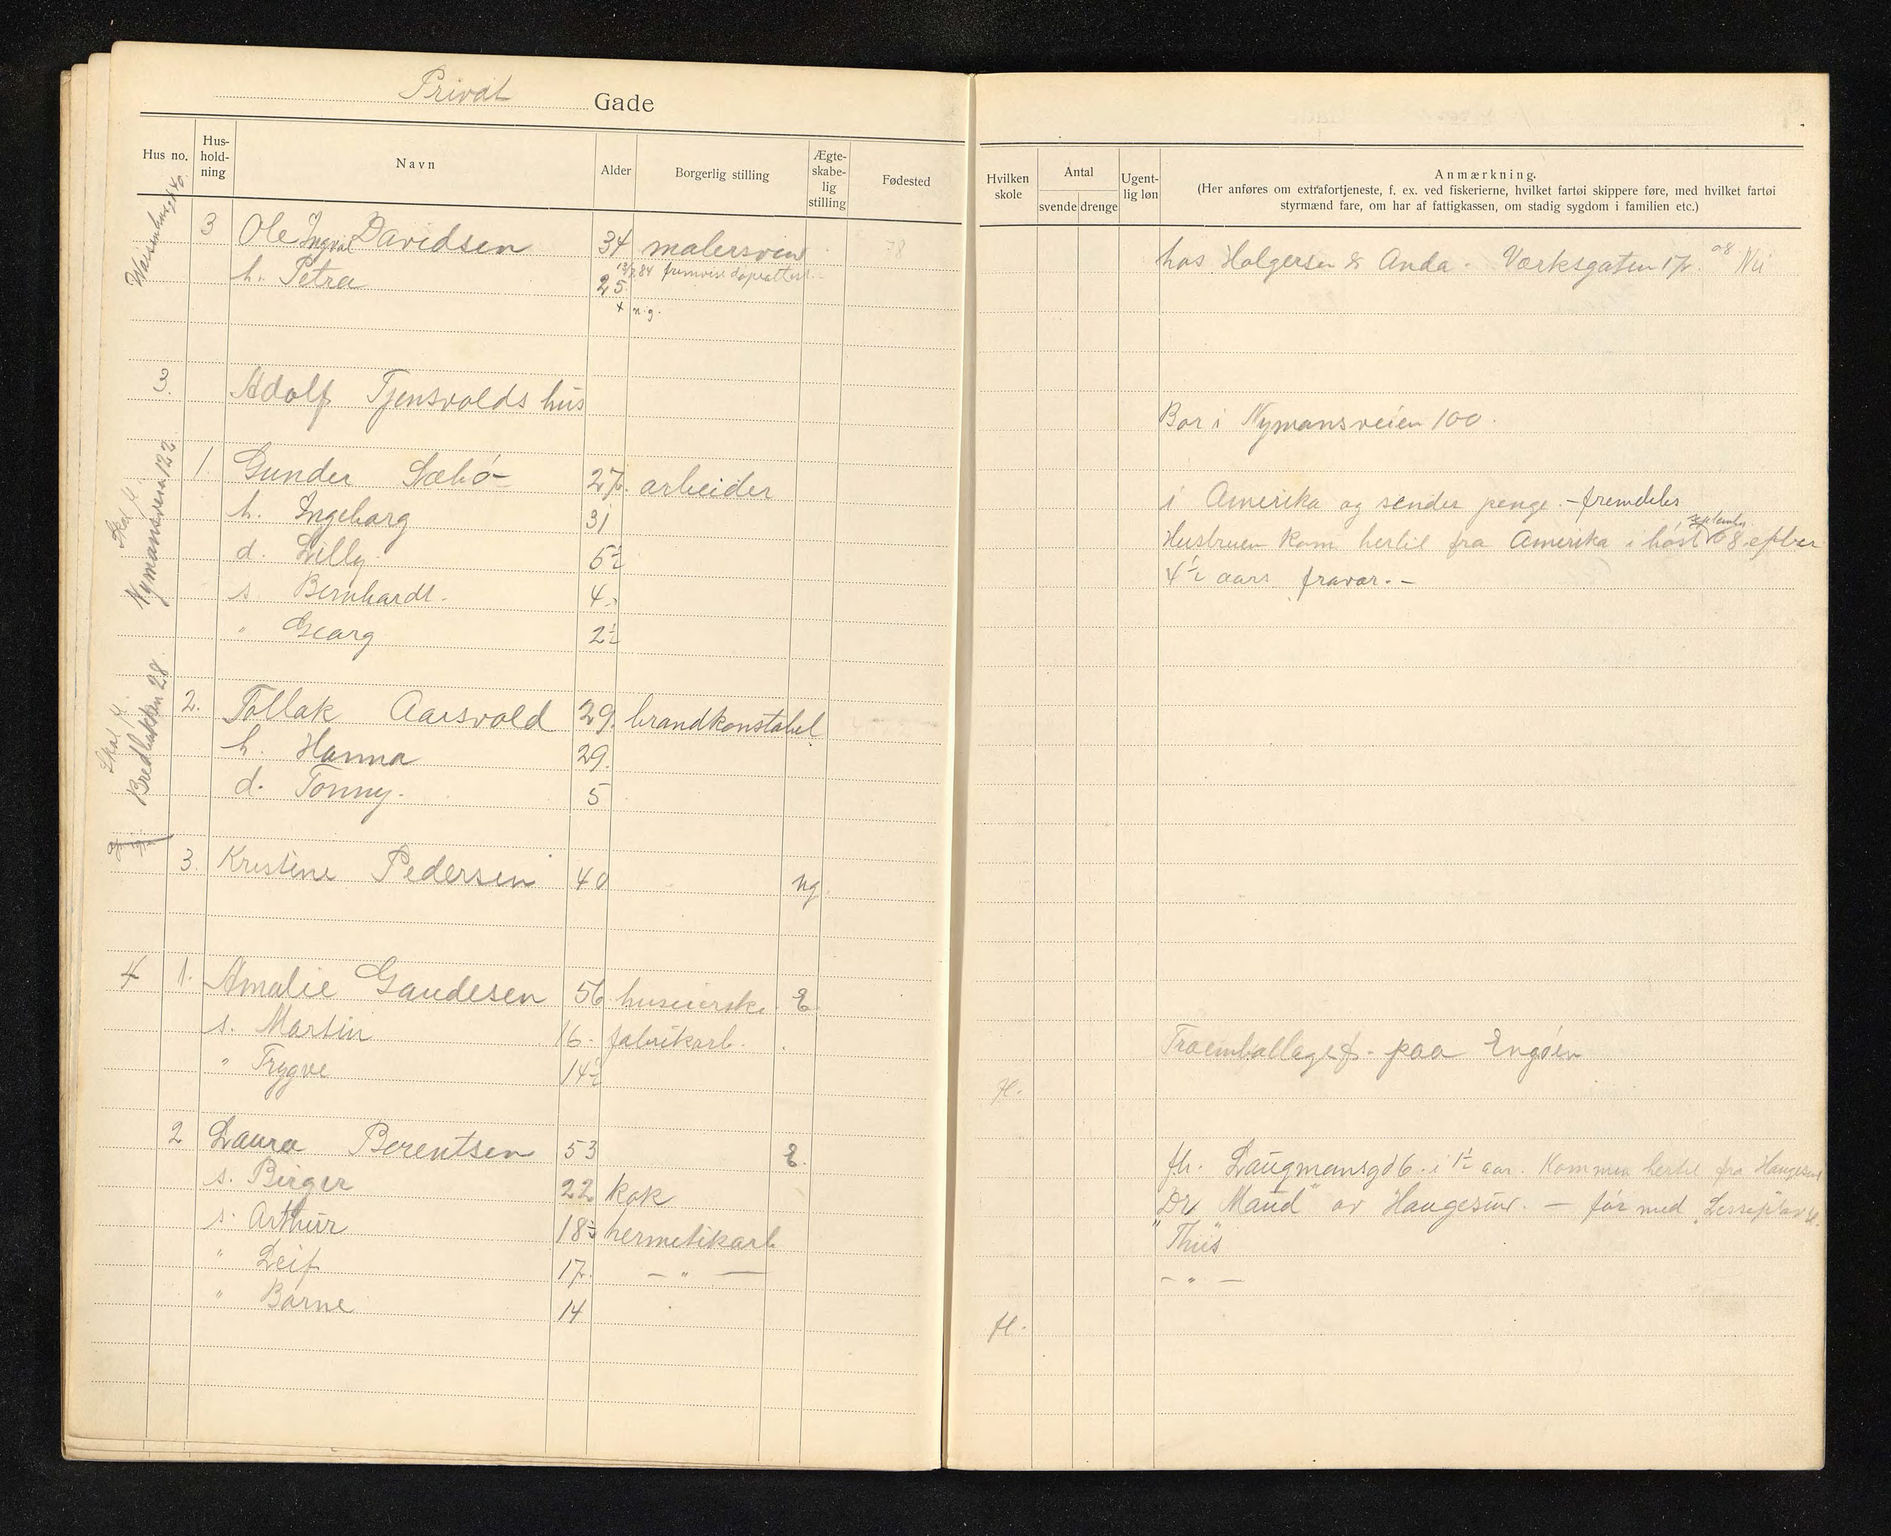 Privat Gade
Hus no. Hus-hold-ning Navn Alder Borgerlig stilling Ægte-skabe-lig stilling Fødested
Hvilken skole Antal svende drenge Ugent-lig løn Anmærkning.
(Her anføres om extrafortjeneste, f. ex. ved fiskerierne, hvilket fartøi skippere føre, med hvilket fartøi
styrmænd fare, om har af fattigkassen, om stadig sygdom i familien etc.)
3 Ole Ingval Davidsen 34 malersvend hos Holgersen & Anda - Værksgaten 17. 08
h. Petra 25
+ n.g.
3. Adolf Tjensvolds hus Bor i Nymansveien 100.
Skal fl. Nymansveien 122
1. Gunder Sæbø 27. arbeider i Amerika og sender penge. - fremdeles
h. Ingeborg 31 Hustruen kom hertil fra Amerika i høst september 08 efter
d. Lilly 5½ 4½ aars fravær. -
s. Bernhardt. 4.
" Georg 2½
Skal fl. Bredbakken 28
2. Tollak Aarsvold 29. brandkonstabel
h. Hanna 29.
d. Tonny. 5
3. Kristine Pedersen 40 ug
4 1. Amalie Gaudesen 56 huseierske. E
s. Martin 16. fabrikarb. Træemballagef. paa Engøen
" Trygve 14½ fl.
2 Laura Berentsen 53 E. fh. Laugmansgd 6. i 1½ aar. Kommen hertil fra Haugesund
s. Birger 22 kok "Maud" av Haugesund. - før med
s. Arthur 18½ hermetikarb "Thiis"
" Leif 17. - " - - " -
" Barne 14 fl.